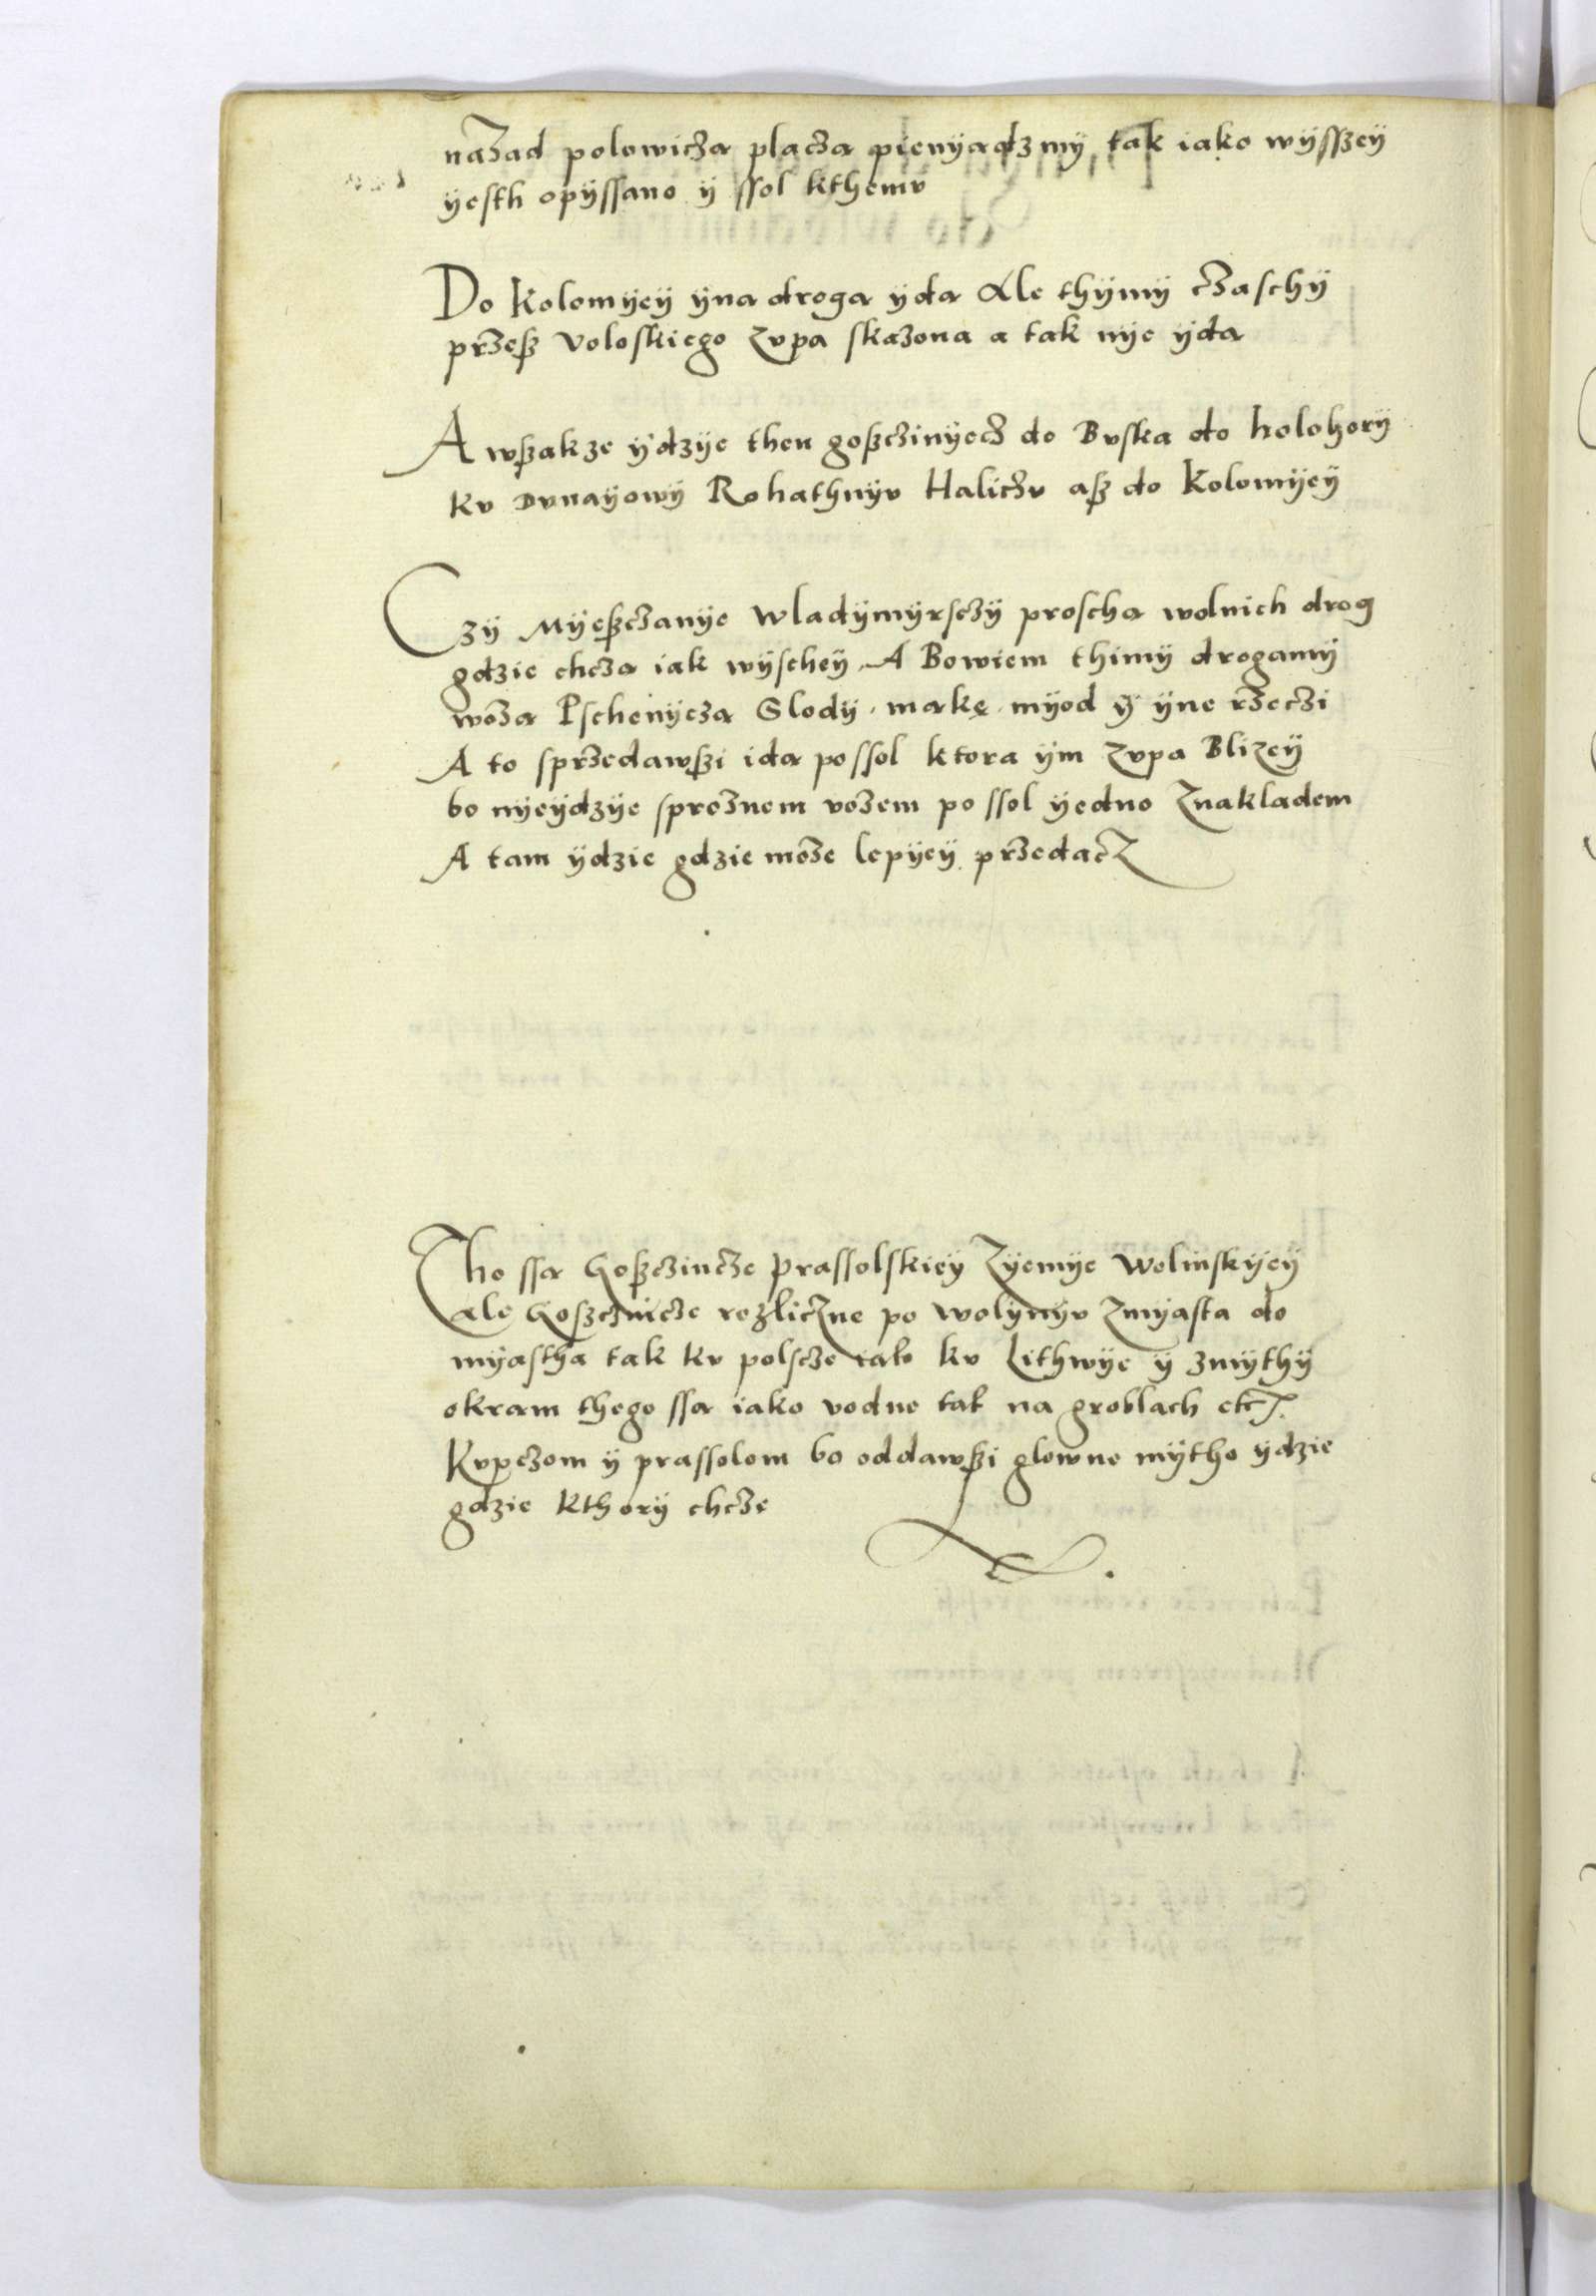 nazad polowicza placza pienyadzmy tak iako wysszey
yesth opyssano y ssol kthemv
Do Kolomyey yna droga yda Ale thymy czaschy
przesz Voloskiego Zvpa skazona a tak nye yda
A wszakze ydzye then goszczinyecz do Bvska do holohory
kv Dvnayowy Rohathnyv Haliczv asz do Kolomyey
Czy Myeszczanye Wladymyrsczy proscha wolnich drog
gdzie chcza iak wyschey A Bowiem thimy drogamy
woza Pschenycza Slody make myod y yne rzeczi
A to sprzedawszi ida possol ktora ym Zvpa Blizey
bo nyeydzye sproznem vozem po ssol yedno Znakladem
A tam ydzie gdzie moze lepyey przedacz
Tho ssa Goszczincze prassolskiey Zyemye Wolinskyey
Ale Goszcznicze rozliczne po wolynyv Zmyasta do
myastha tak kv polscze tak kv Lithwye y zmythy
okram thego ssa iako vodne tak na groblach etc.
Kvpczom y prassolom bo oddawszi glowne mytho ydzie
gdzie kthory chcze